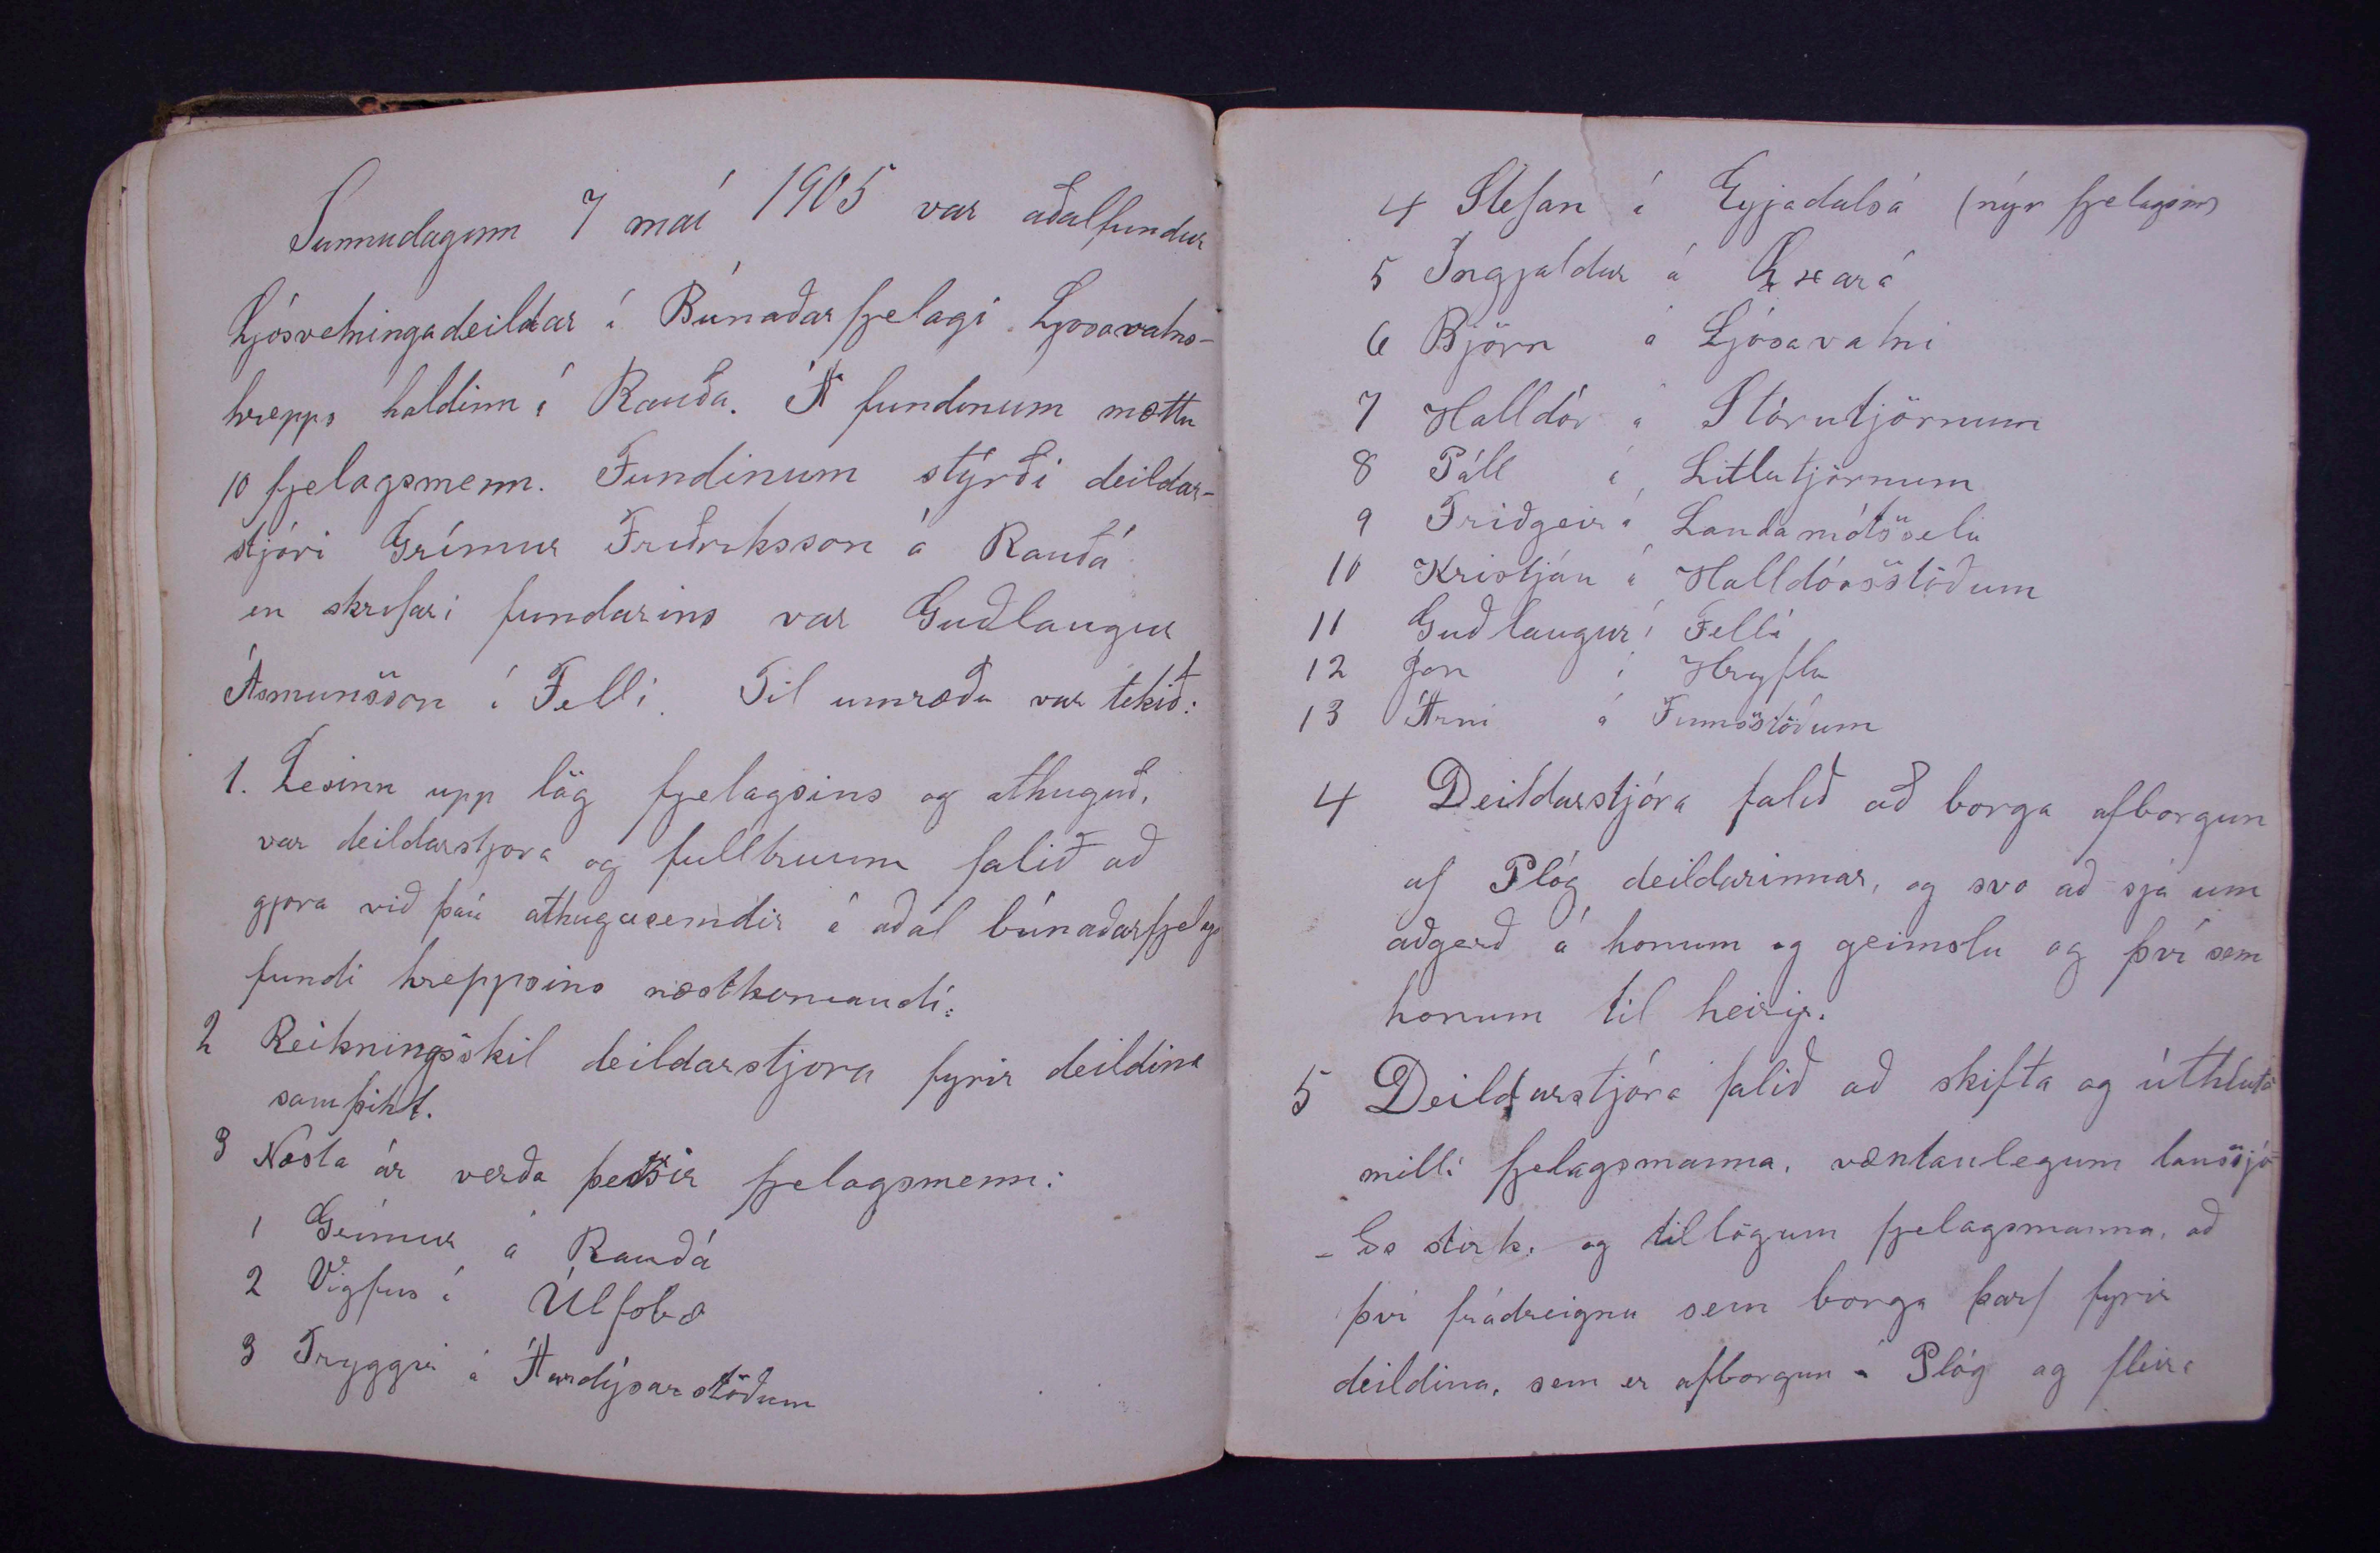 Sunnudaginn 7 maí 1905 var aðalfundur
Ljósvetningadeildar í Búnaðarfjelagi Ljosavatns-
hrepps haldinn á Rauða. Á fundinum mættu
10 fjelagsmenn. Fundinum stýrði deildar-
stjóri Grímur Friðriksson á Rauðá
en skrifari fundarins var Guðlaugur
Ásmunsson í Felli. Til umræðu var tekið:
1. Lesinn upp lög fjelagsins og athuguð.
var deildarstjora og fulltruum falið að
gjora við þau athugasemdir á aðal búnaðarfjelags
fundi hreppsins næstkomandi:
2 Reikningsskil deildarstjora fyrir deildina
samþikt.
3 Næsta ár verða þessir fjelagsmenn:
1 Grímur á Rauðá
2 Vigfus í Úlfsbæ
3 Tryggvi á Arndýsarstöðum
4 Stefan í Eyjadalsá (nýr fjelagsm)
5 Ingjaldur á Öxará
6 Björn á Ljósavatni
7 Halldór á Stórutjörnum
8 Páll á Litlutjörnum
9 Friðgeir á Landamótsseli
10 Kristján á Halldórsstöðum
11 Guðlaugur í Felli
12 Jon í Hryflu
13 Árni á Finnsstöðum
4 Deildarstjóra falið að borga afborgun
af Plóg deildarinnar, og svo að sjá um
aðgerð á honum og geimslu og því sem
honum til heirir.
5 Deildarstjóra falið að skifta og úthluta
milli fjelagsmanna, væntanlegum lanssjó-
-ðs stirk. og tillögum fjelagsmanna, að
því frádreignu sem borga þarf fyrir
deildina, sem er afborgun á Plóg og fleira